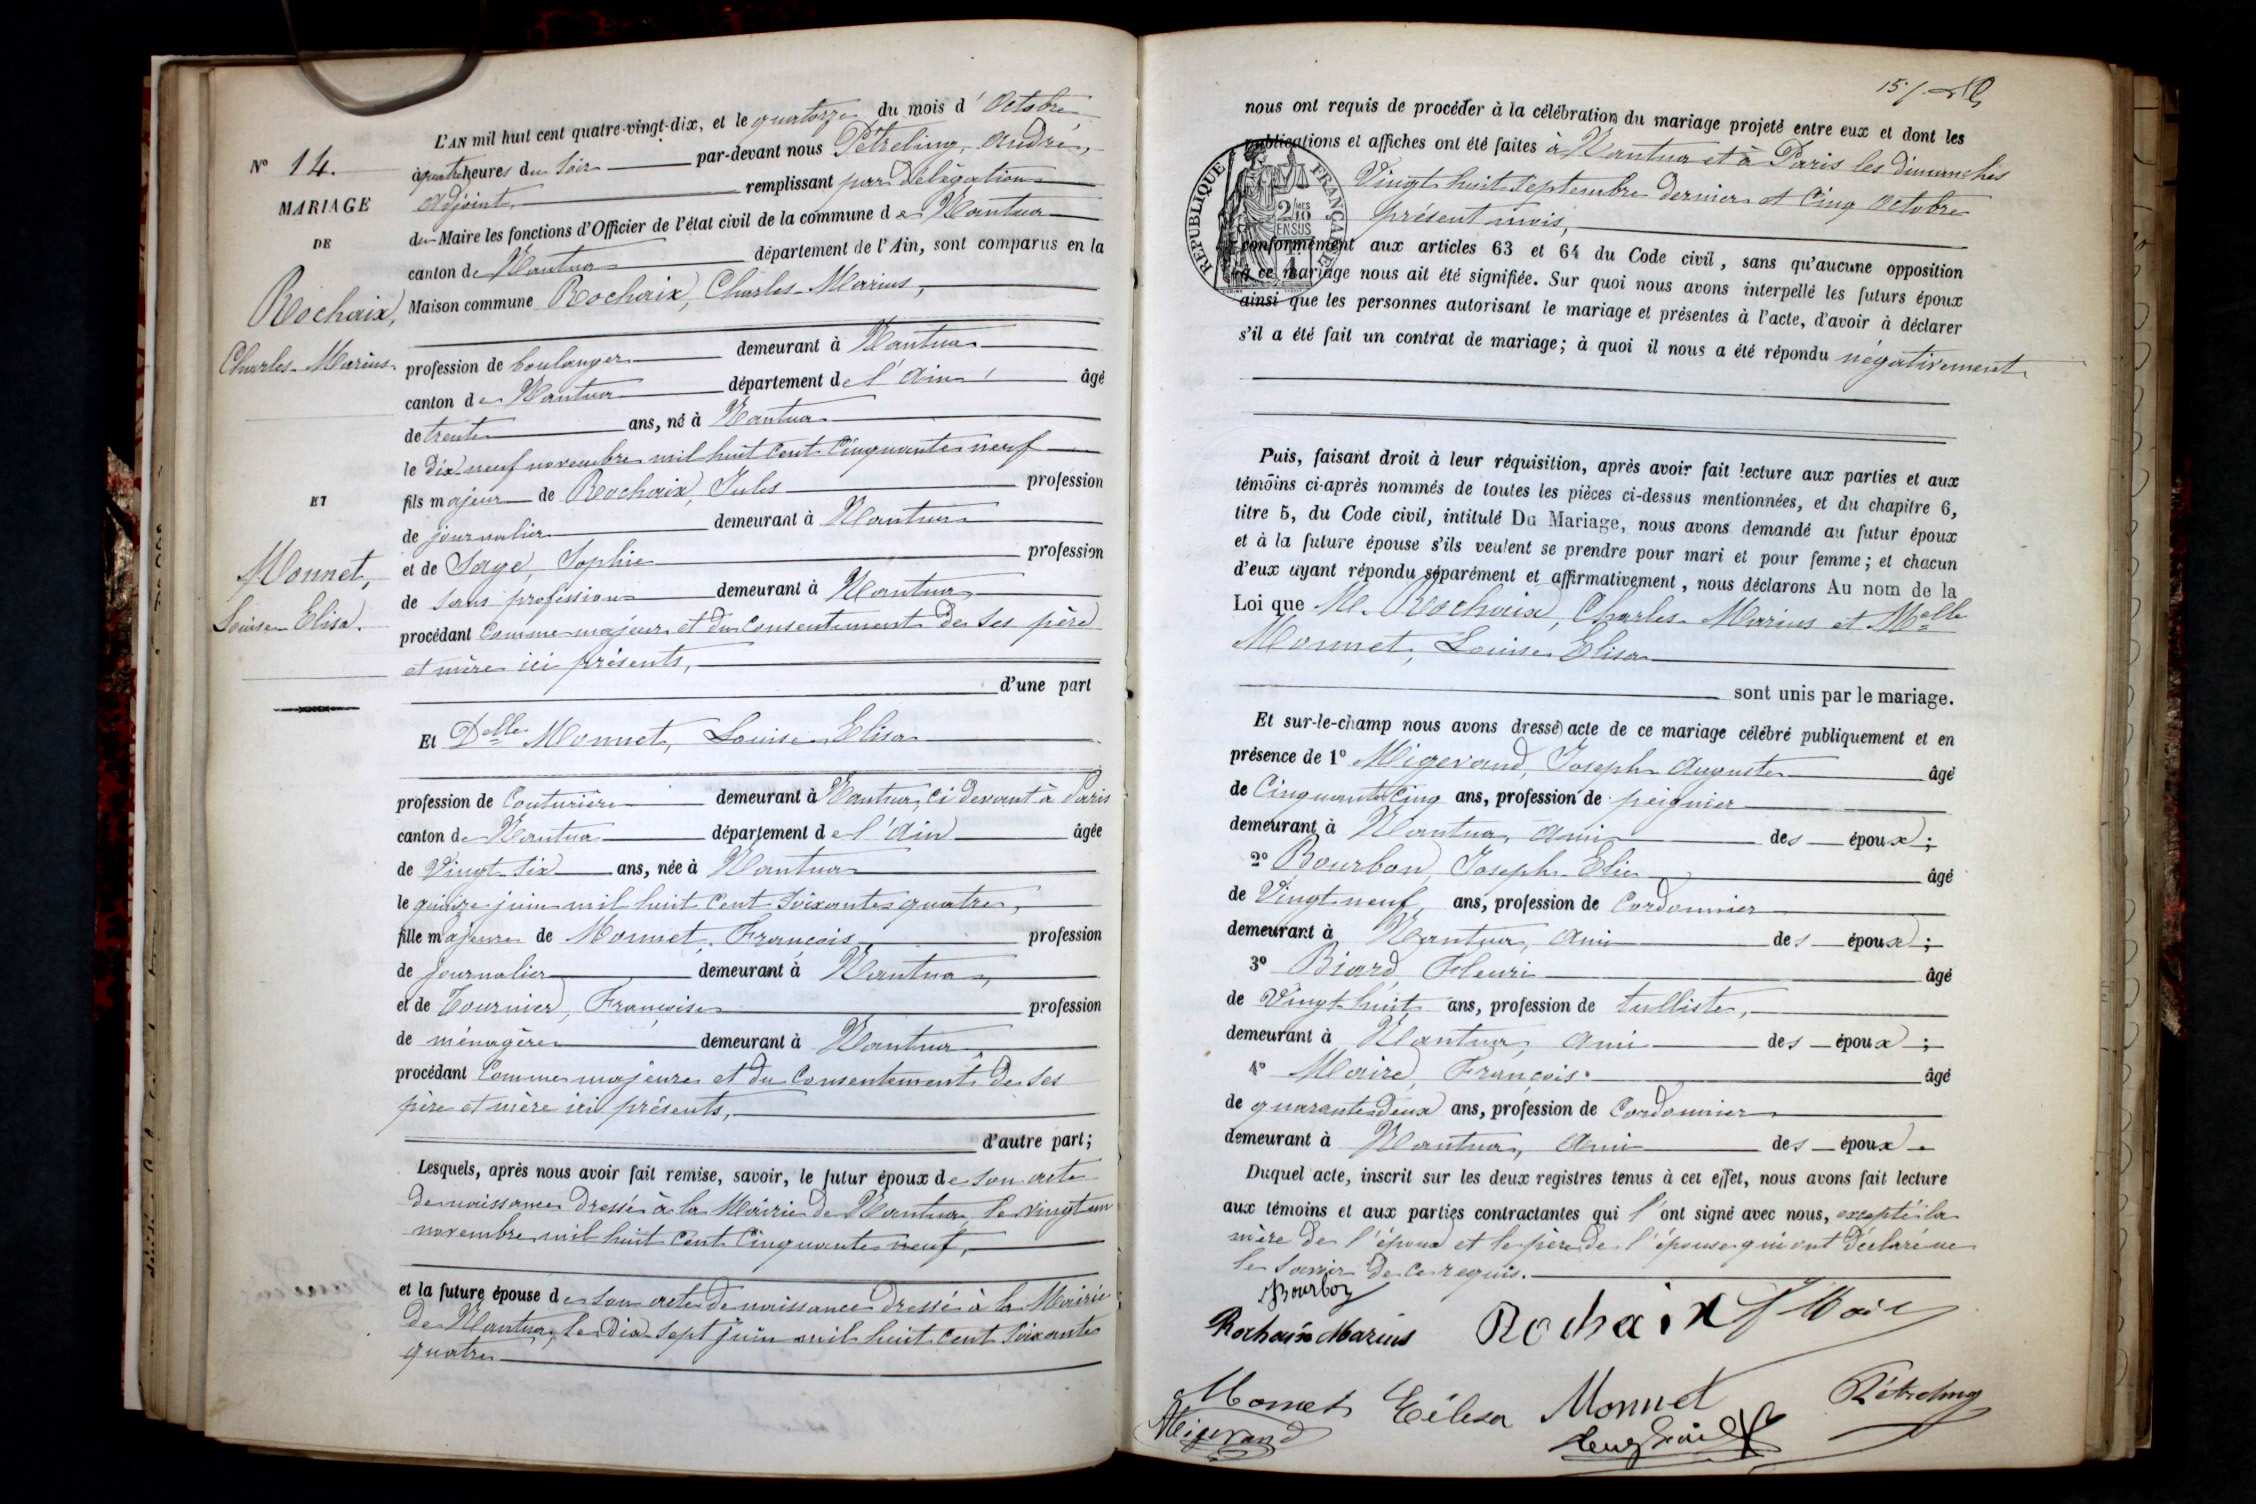 L'AN mil huit cent quatre-vingt-dix, et le quatorze du mois d'Octobre
à quatre heures du Soir par-devant nous Pétreling, André,
adjoint, remplissant par délégation
du Maire les fonctions d'Officier de l'état civil de la commune de Nantua
canton de Nantua département de l'Ain, sont comparus en la
Maison commune Rochaix, Charles-Marius,
profession de boulanger demeurant à Nantua
canton de Nantua département de l'Ain, âgé
de trente ans, né à Nantua
le dix neuf novembre mil huit cent cinquante neuf
fils majeur de Rochaix, Jules profession
de journalier demeurant à Nantua
et de Sage, Sophie profession
de sans profession demeurant à Nantua
procédant comme majeur et du consentement de ses père
et mère ici présents,
d'une part
Et Delle Monnet, Louise Elisa
profession de couturière demeurant à Nantua, ci devant à Paris
canton de Nantua département de l'Ain âgée
de Vingt six ans, née à Nantua
le quinze juin mil huit cent soixante quatre,
fille majeure de Monnet, François profession
de journalier demeurant à Nantua,
et de Tournier, Françoise profession
de ménagère demeurant à Nantua,
procédant comme majeure et du consentement de ses
père et mère ici présents,
d'autre part;
Lesquels, après nous avoir fait remise, savoir, le futur époux de son acte
de naissance dressé à la Mairie de Nantua, le vingt un
novembre mil huit cent cinquante neuf,
et la future épouse de son acte de naissance dressé à la Mairie
de Nantua, le Dix sept juin mil huit cent soixante
quatre
N° 14.
MARIAGE
DE
Rochaix,
Charles-Marius.
ET
Monnet,
Louise Elisa.
15./.
nous ont requis de procéder à la célébration du mariage projeté entre eux et dont les
publications et affiches ont été faites à Nantua et à Paris les dimanches
Vingt huit septembre dernier et Cinq Octobre
présent mois,
conformément aux articles 63 et 64 du Code civil, sans qu'aucune opposition
à ce mariage nous ait été signifiée. Sur quoi nous avons interpellé les futurs époux
ainsi que les personnes autorisant le mariage et présentes à l'acte, d'avoir à déclarer
s'il a été fait un contrat de mariage; à quoi il nous a été répondu négativement
RÉPUBLIQUE FRANÇAISE
2/10 EN SUS
Puis, faisant droit à leur réquisition, après avoir fait lecture aux parties et aux
témoins ci-après nommés de toutes les pièces ci-dessus mentionnées, et du chapitre 6,
titre 5, du Code civil, intitulé Du Mariage, nous avons demandé au futur époux
et à la future épouse s'ils veulent se prendre pour mari et pour femme; et chacun
d'eux ayant répondu séparément et affirmativement, nous déclarons Au nom de la
Loi que M. Rochaix, Charles-Marius et Melle
Monnet, Louise Elisa
sont unis par le mariage.
Et sur-le-champ nous avons dressé acte de ce mariage célébré publiquement et en
présence de 1° Migerand, Joseph Auguste âgé
de Cinquante Cinq ans, profession de peignier
demeurant à Nantua, ami des époux;
2° Bourbon, Joseph Elie âgé
de Vingt neuf ans, profession de Cordonnier
demeurant à Nantua, ami des époux;
3° Biard Henri âgé
de Vingt huit ans, profession de tulliste,
demeurant à Nantua, ami des époux;
4° Maire, François. âgé
de quarante deux ans, profession de Cordonnier
demeurant à Nantua, ami des époux.
Duquel acte, inscrit sur les deux registres tenus à cet effet, nous avons fait lecture
aux témoins et aux parties contractantes qui l'ont signé avec nous, excepté la
mère de l'époux et le père de l'épouse qui ont déclaré ne
le savoir de ce requis.
Bourbon
Rochaix Marius Rochaix F Maire
Monnet Eélisa Monnet Pétreling
Migerand